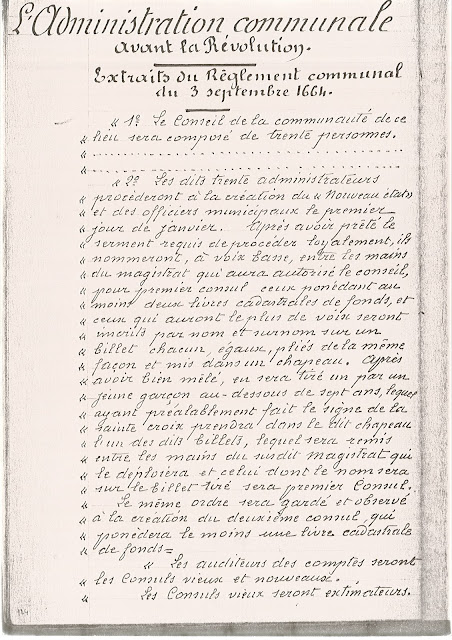 L'Administration communale
avant la Révolution.
Extraits du Règlement communal
du 3 septembre 1664.
« 1º Le Conseil de la communauté de ce
« lieu sera composé de trente personnes.
« ..............................
« ..............................
« 2º Les dits trente administrateurs
« procéderont à la création du « Nouveau état »
« et des officiers municipaux le premier
« jour de janvier. Après avoir prêté le
« serment requis de procéder loyalement, ils
« nommeront, à voix basse, entre les mains
« du magistrat qui aura autorisé le conseil,
« pour premier consul ceux possédant au
« moins deux livres cadastrales de fonds, et
« ceux qui auront le plus de voix seront
« inscrits par nom et surnom sur un
« billet chacun, égaux, pliés de la même
« façon et mis dans un chapeau. Après
« avoir bien mêlé, en sera tiré un par un
« jeune garçon au-dessous de sept ans, lequel
« ayant préalablement fait le signe de la
« sainte croix prendra dans le dit chapeau
« l'un des dits billets, lequel sera remis
« entre les mains du susdit magistrat qui
« le déploiera et celui dont le nom sera
« sur le billet tiré sera premier Consul.
« Le même ordre sera gardé et observé
« à la création du deuxième consul, qui
« possédera le moins une livre cadastrale
« de fonds =
« « Les auditeurs des comptes seront
« les Consuls vieux et nouveaux.
« Les Consuls vieux seront extimateurs.